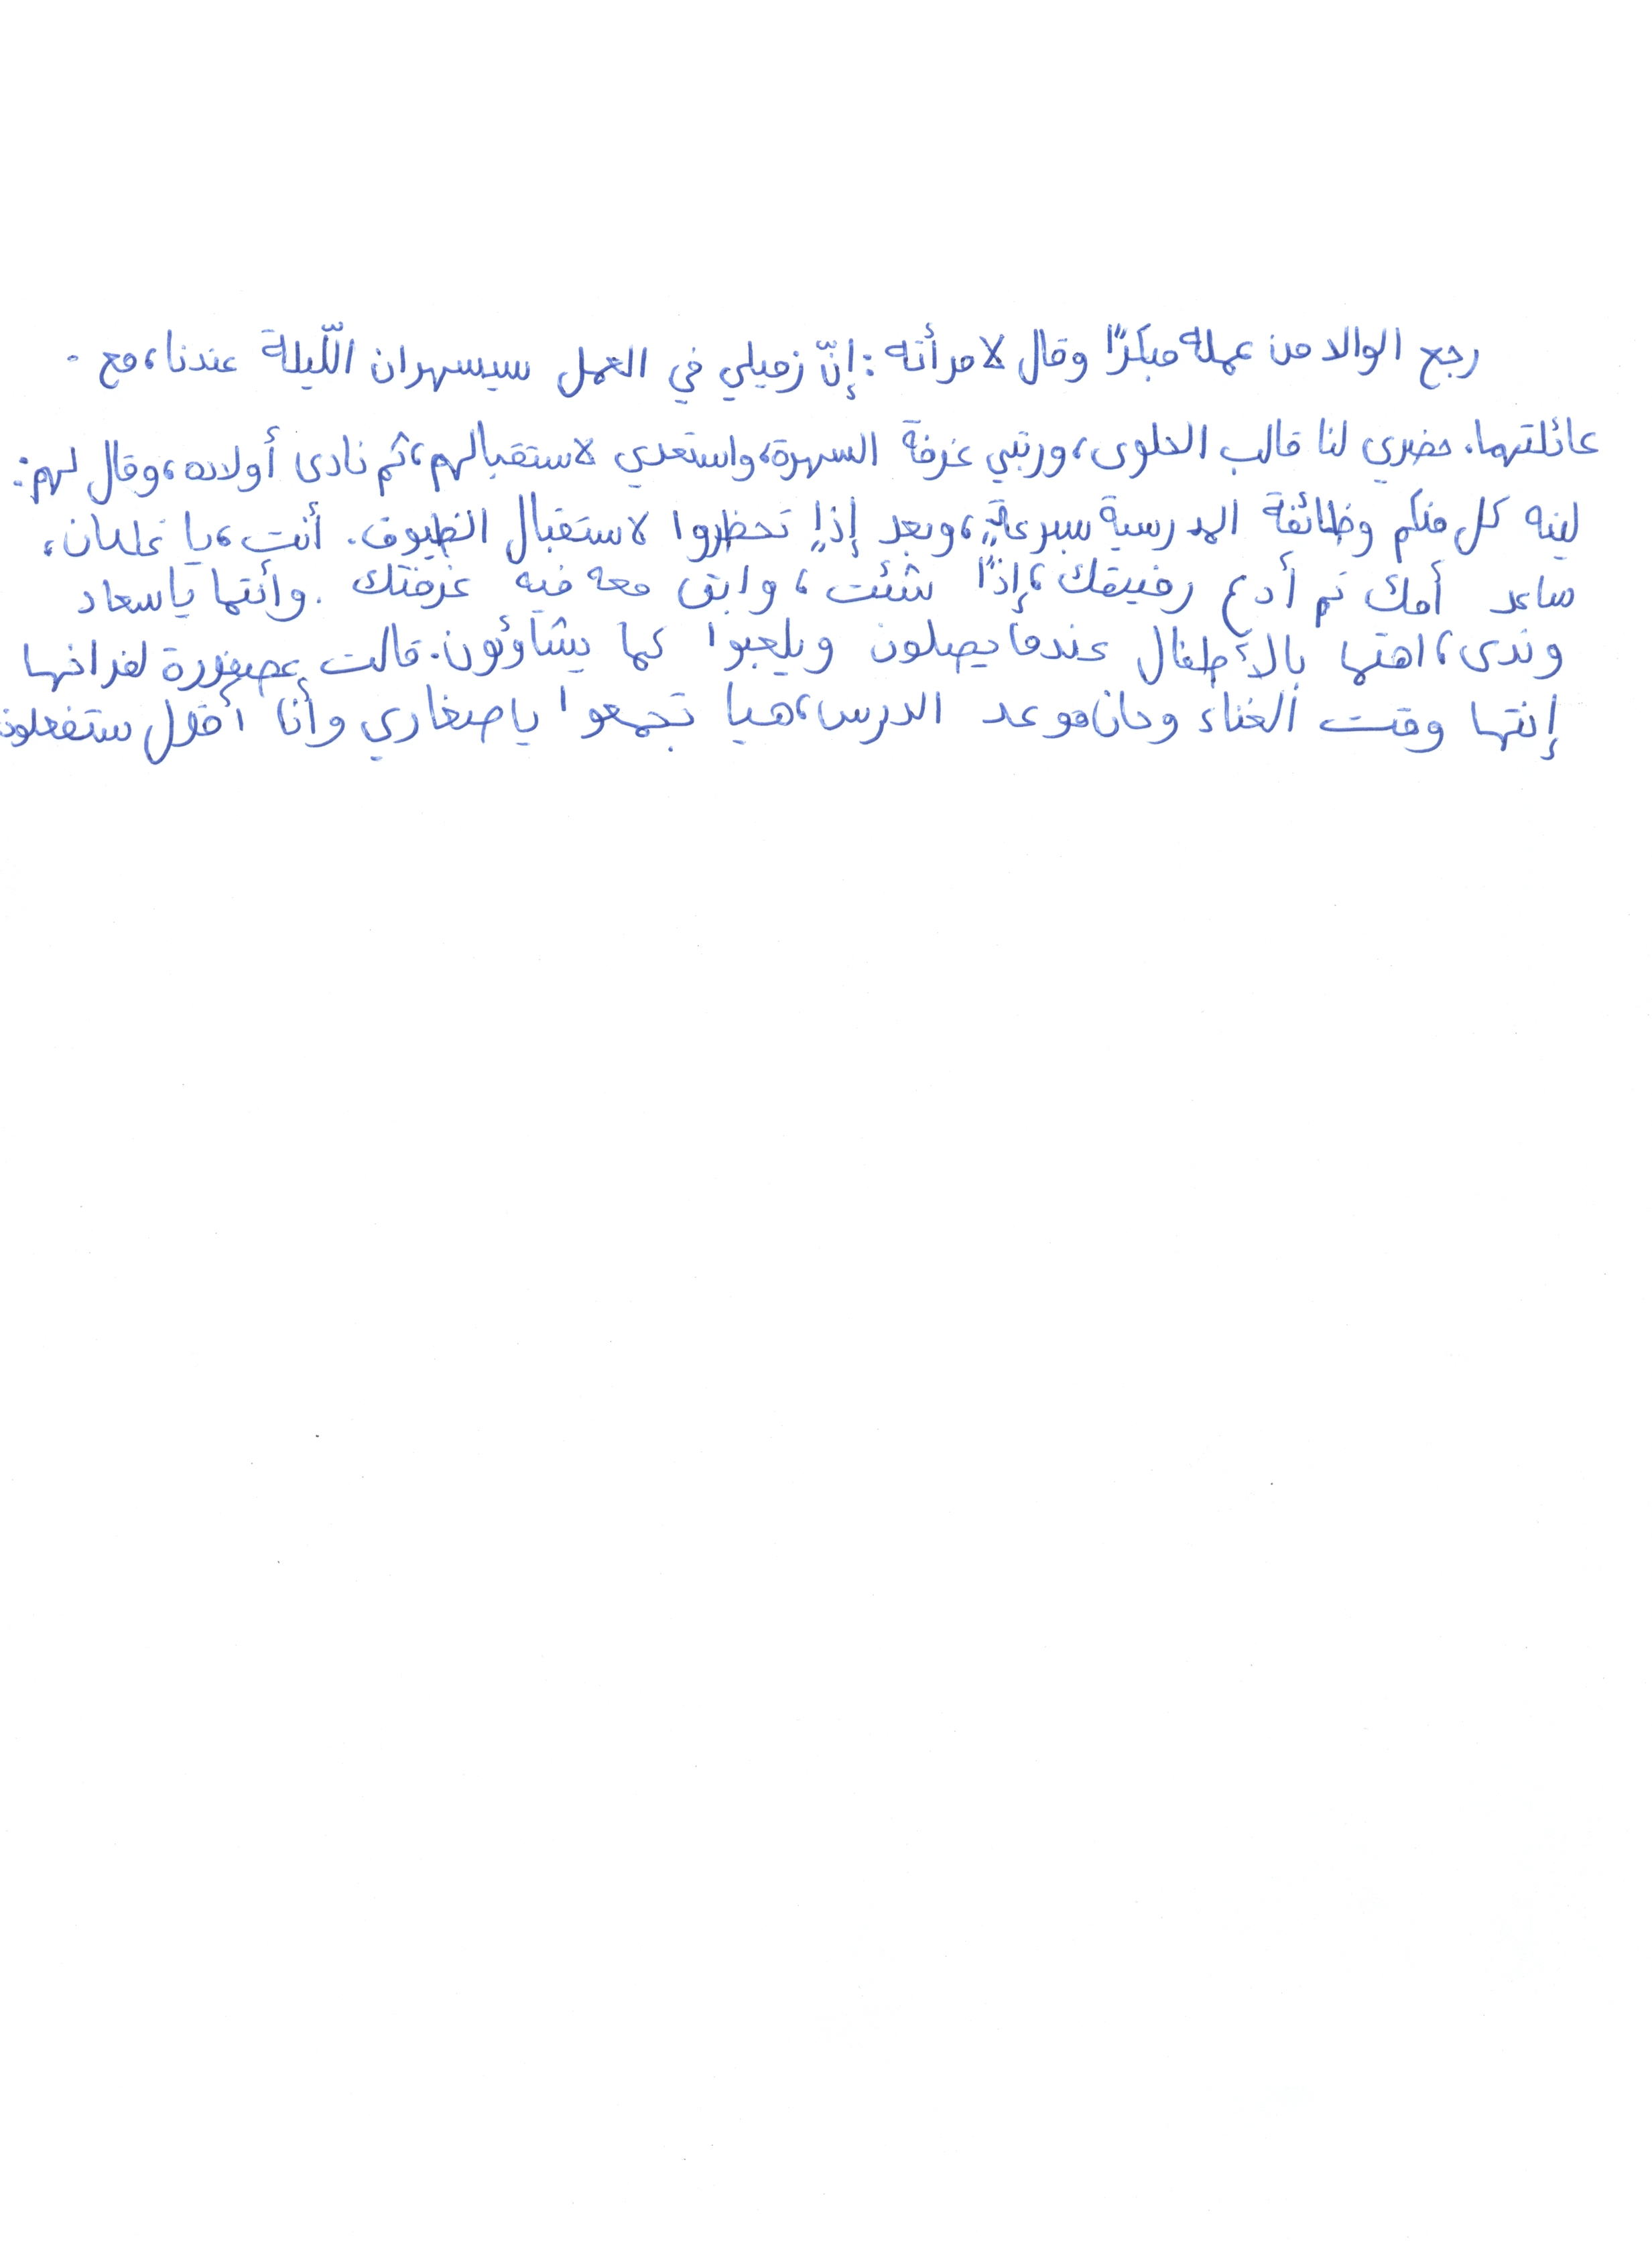 رجع الوالد من عمله مبكرًا وقال لامرأته : إنّ زميلي في العمل سيسهران اللّيلة عندنا، مع -
عائلتهما. حضري لنا قالب الحلوى، ورتبي غرفة السهرة، واستعدي لاستقبالهم، ثم نادى أولاده، وقال لهم:
لينه كل منكم وظائفة المدرسية سبرعةٍ، وبعد إذاٍ تحظروا لاستقبال الظيوف. أنت، يا غلمان،
ساعد أمك ثم أدع رفيقك، إذًا شئت، وابق معه فيه غرفتك. وأنتما ياسعاد
وندى، اهتما بالأطفال عندما يصلون ويلعبوا كما يشاؤون. قالت عصفورة لفراخها
إنتها وقت الغناء وحان موعد الدرس، هيا تجمعوا ياصغاري وأنا أقول ستفعلون